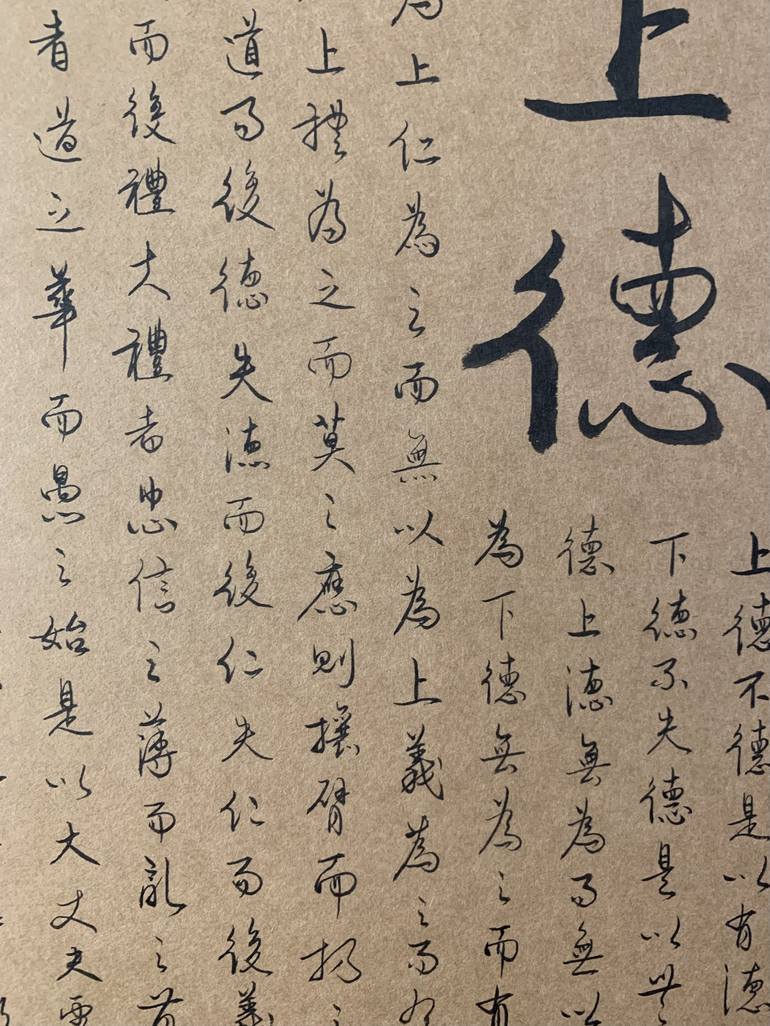 上德
上德不德是以有德
下德不失德是以無
德上德無為而無以
為下德無為之而有
為上仁為之而無以為上義為之而有
上禮為之而莫之應則攘臂而扔之
道而後德失德而後仁失仁而後義
而後禮大禮者忠信之薄而亂之首
者道之華而愚之始是以大丈夫處